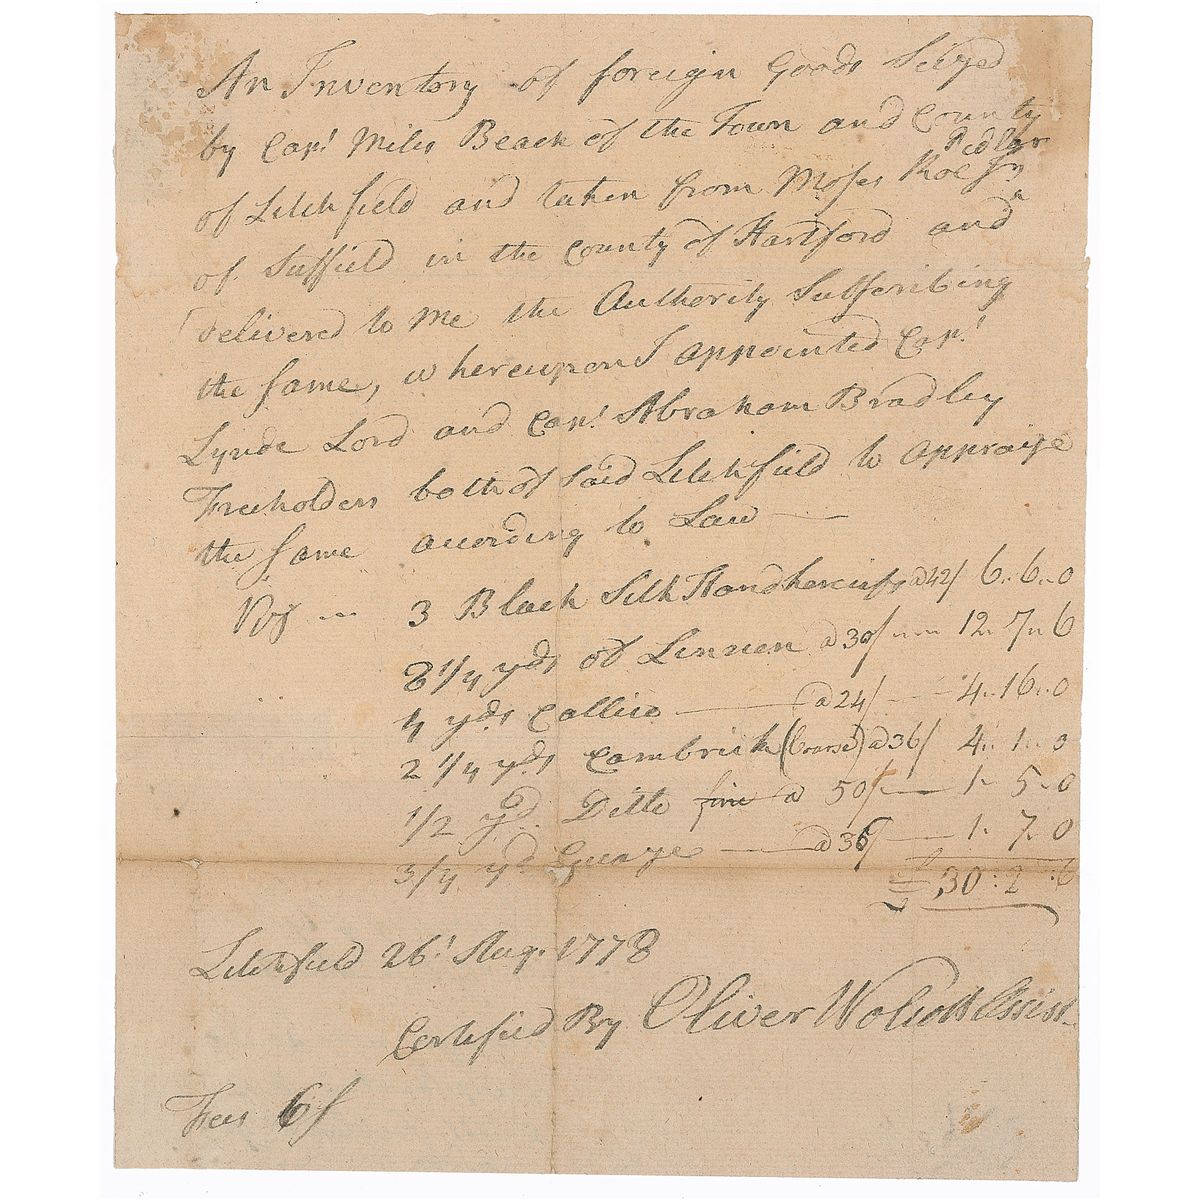 An Inventory of foreign Goods Seized
by Capt. Miles Beach of the Town and County
Pedlar
of Litchfield and taken from Moses Roe Jnr
of Suffield in the County of Hartford and
Delivered to Me the Authority Subscribing
the Same, whereupon I appointed Capt.
Lynde Lord and Capt. Abraham Bradley
Freeholders both of Said Litchfield to appraize
the Same according to Law —
Viz — 3 Black Silk Handkerciefs @ 42/ 6..6..0
8 1/4 yds of Linnen @ 30/ 12..7..6
4 yds Callico — @ 24/ — 4..16..0
2 1/4 yds Cambrick (Coarse) @ 36/ 4..1..0
1/2 yd. Ditto fine @ 50/ — 1..5..0
3/4 yd Guaze — @ 36/ — 1..7..0
£30:2:6
Litchfield 26t Aug. 1778
Certified By Oliver Wolcott Assist.
Fees 6/